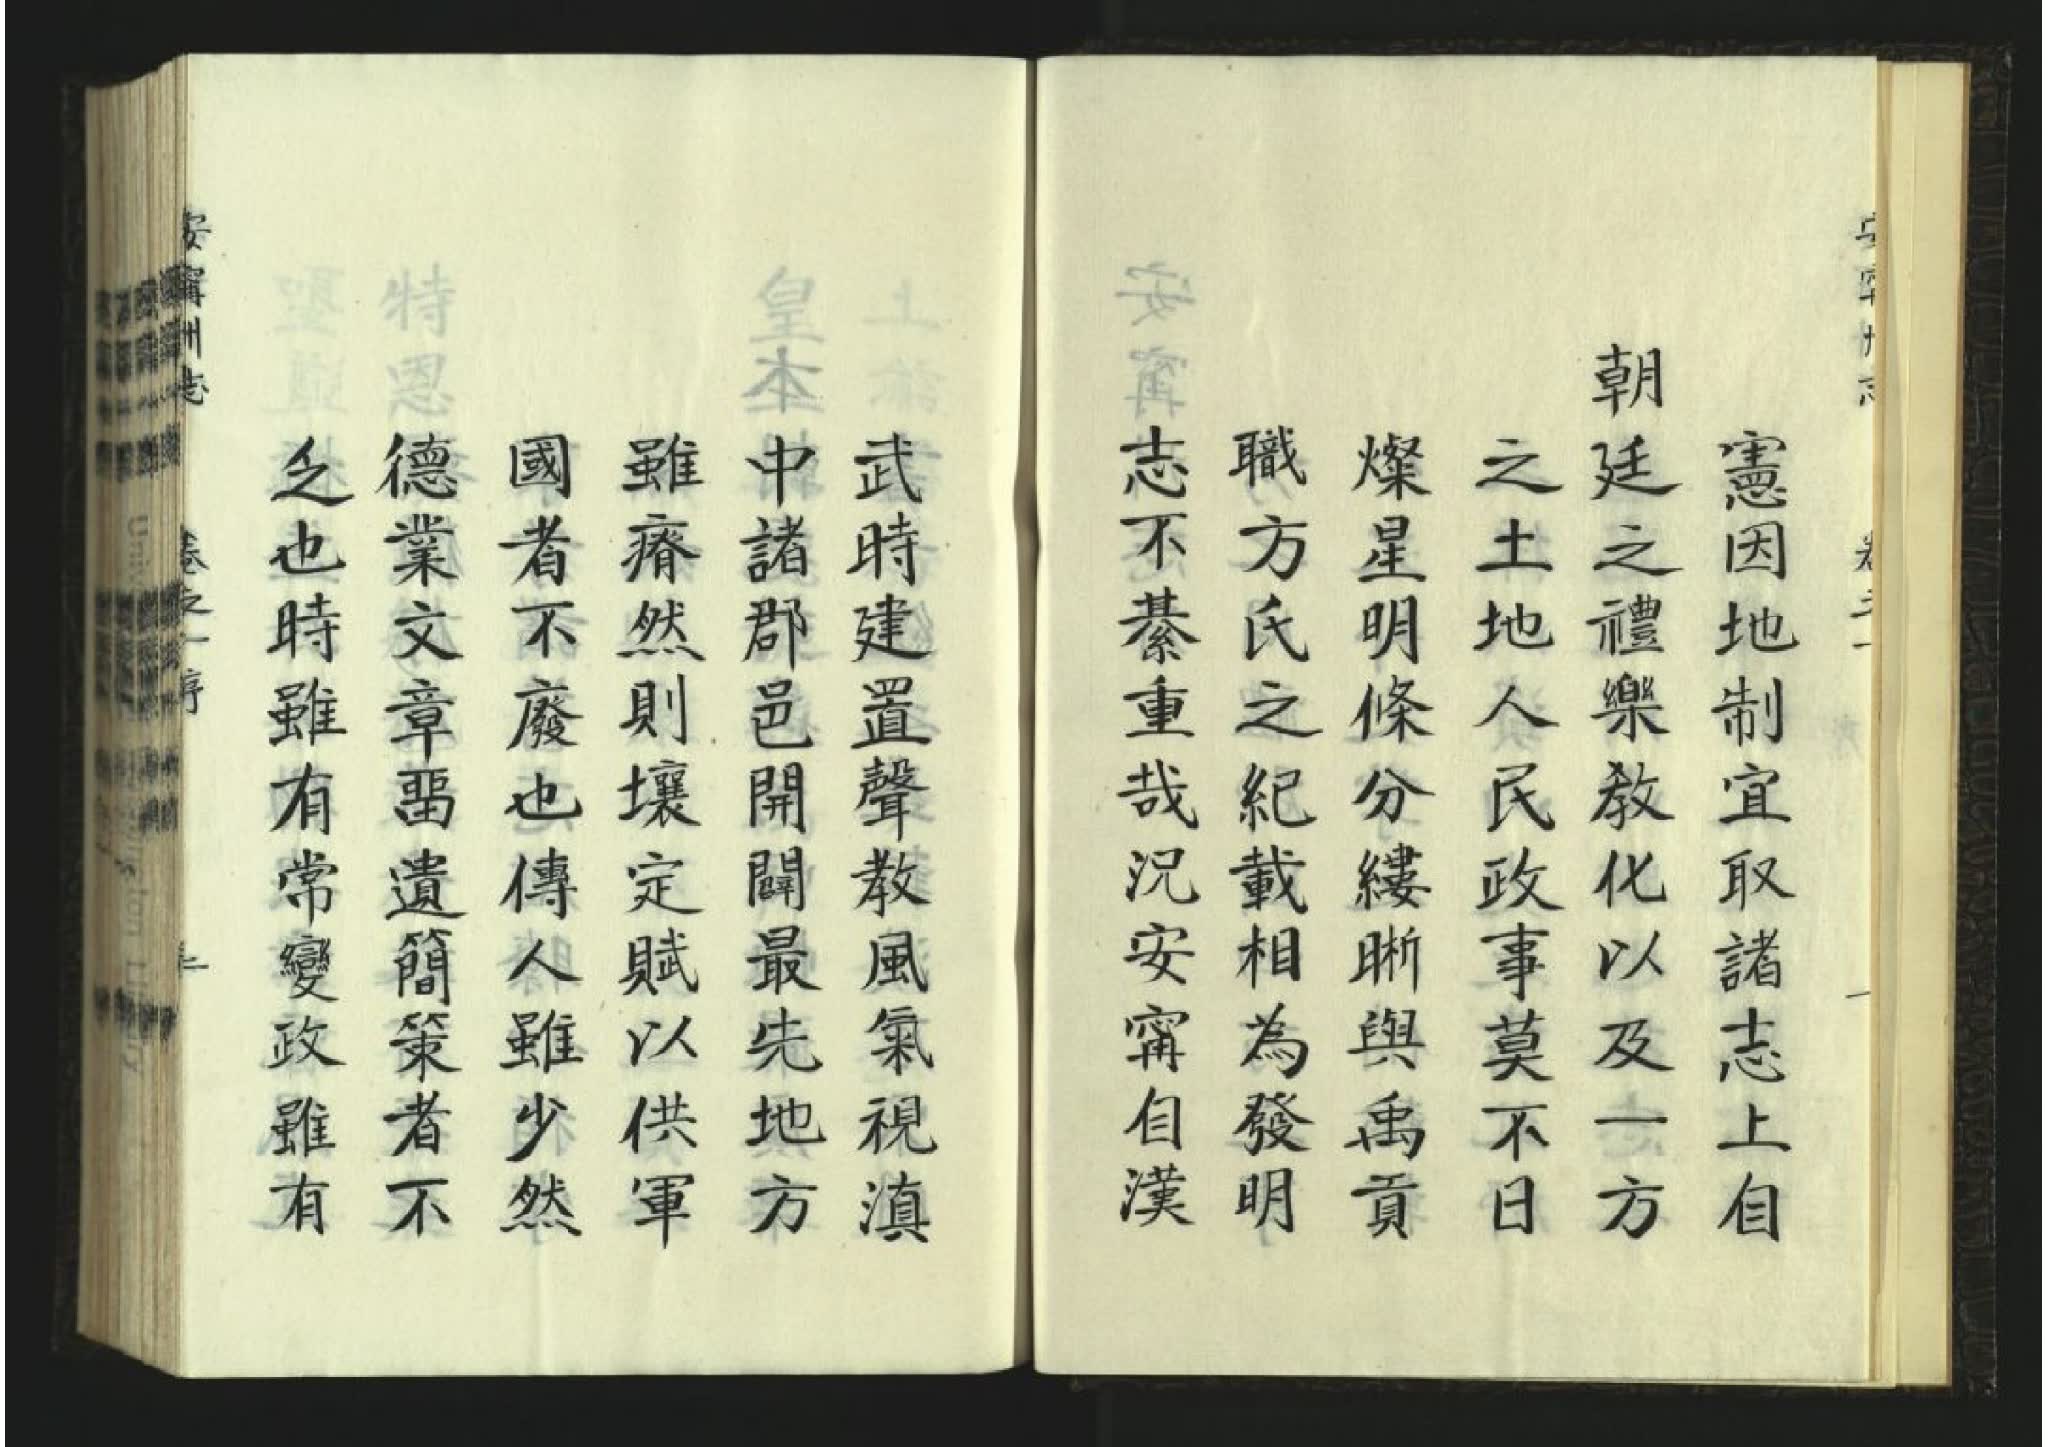 安寧州志 卷之一 一
憲因地制宜取諸志上自
朝廷之禮樂教化以及一方
之土地人民政事莫不日
燦星明條分縷晰與禹貢
職方氏之紀載相為發明
志不綦重哉況安甯自漢
武時建置聲教風氣視滇
本
中諸郡邑開闢最先地方
雖瘠然則壤定賦以供軍
國者不廢也傳人雖少然
德業文章畱遺簡策者不
乏也時雖有常變政雖有
安甯州志 卷之一序